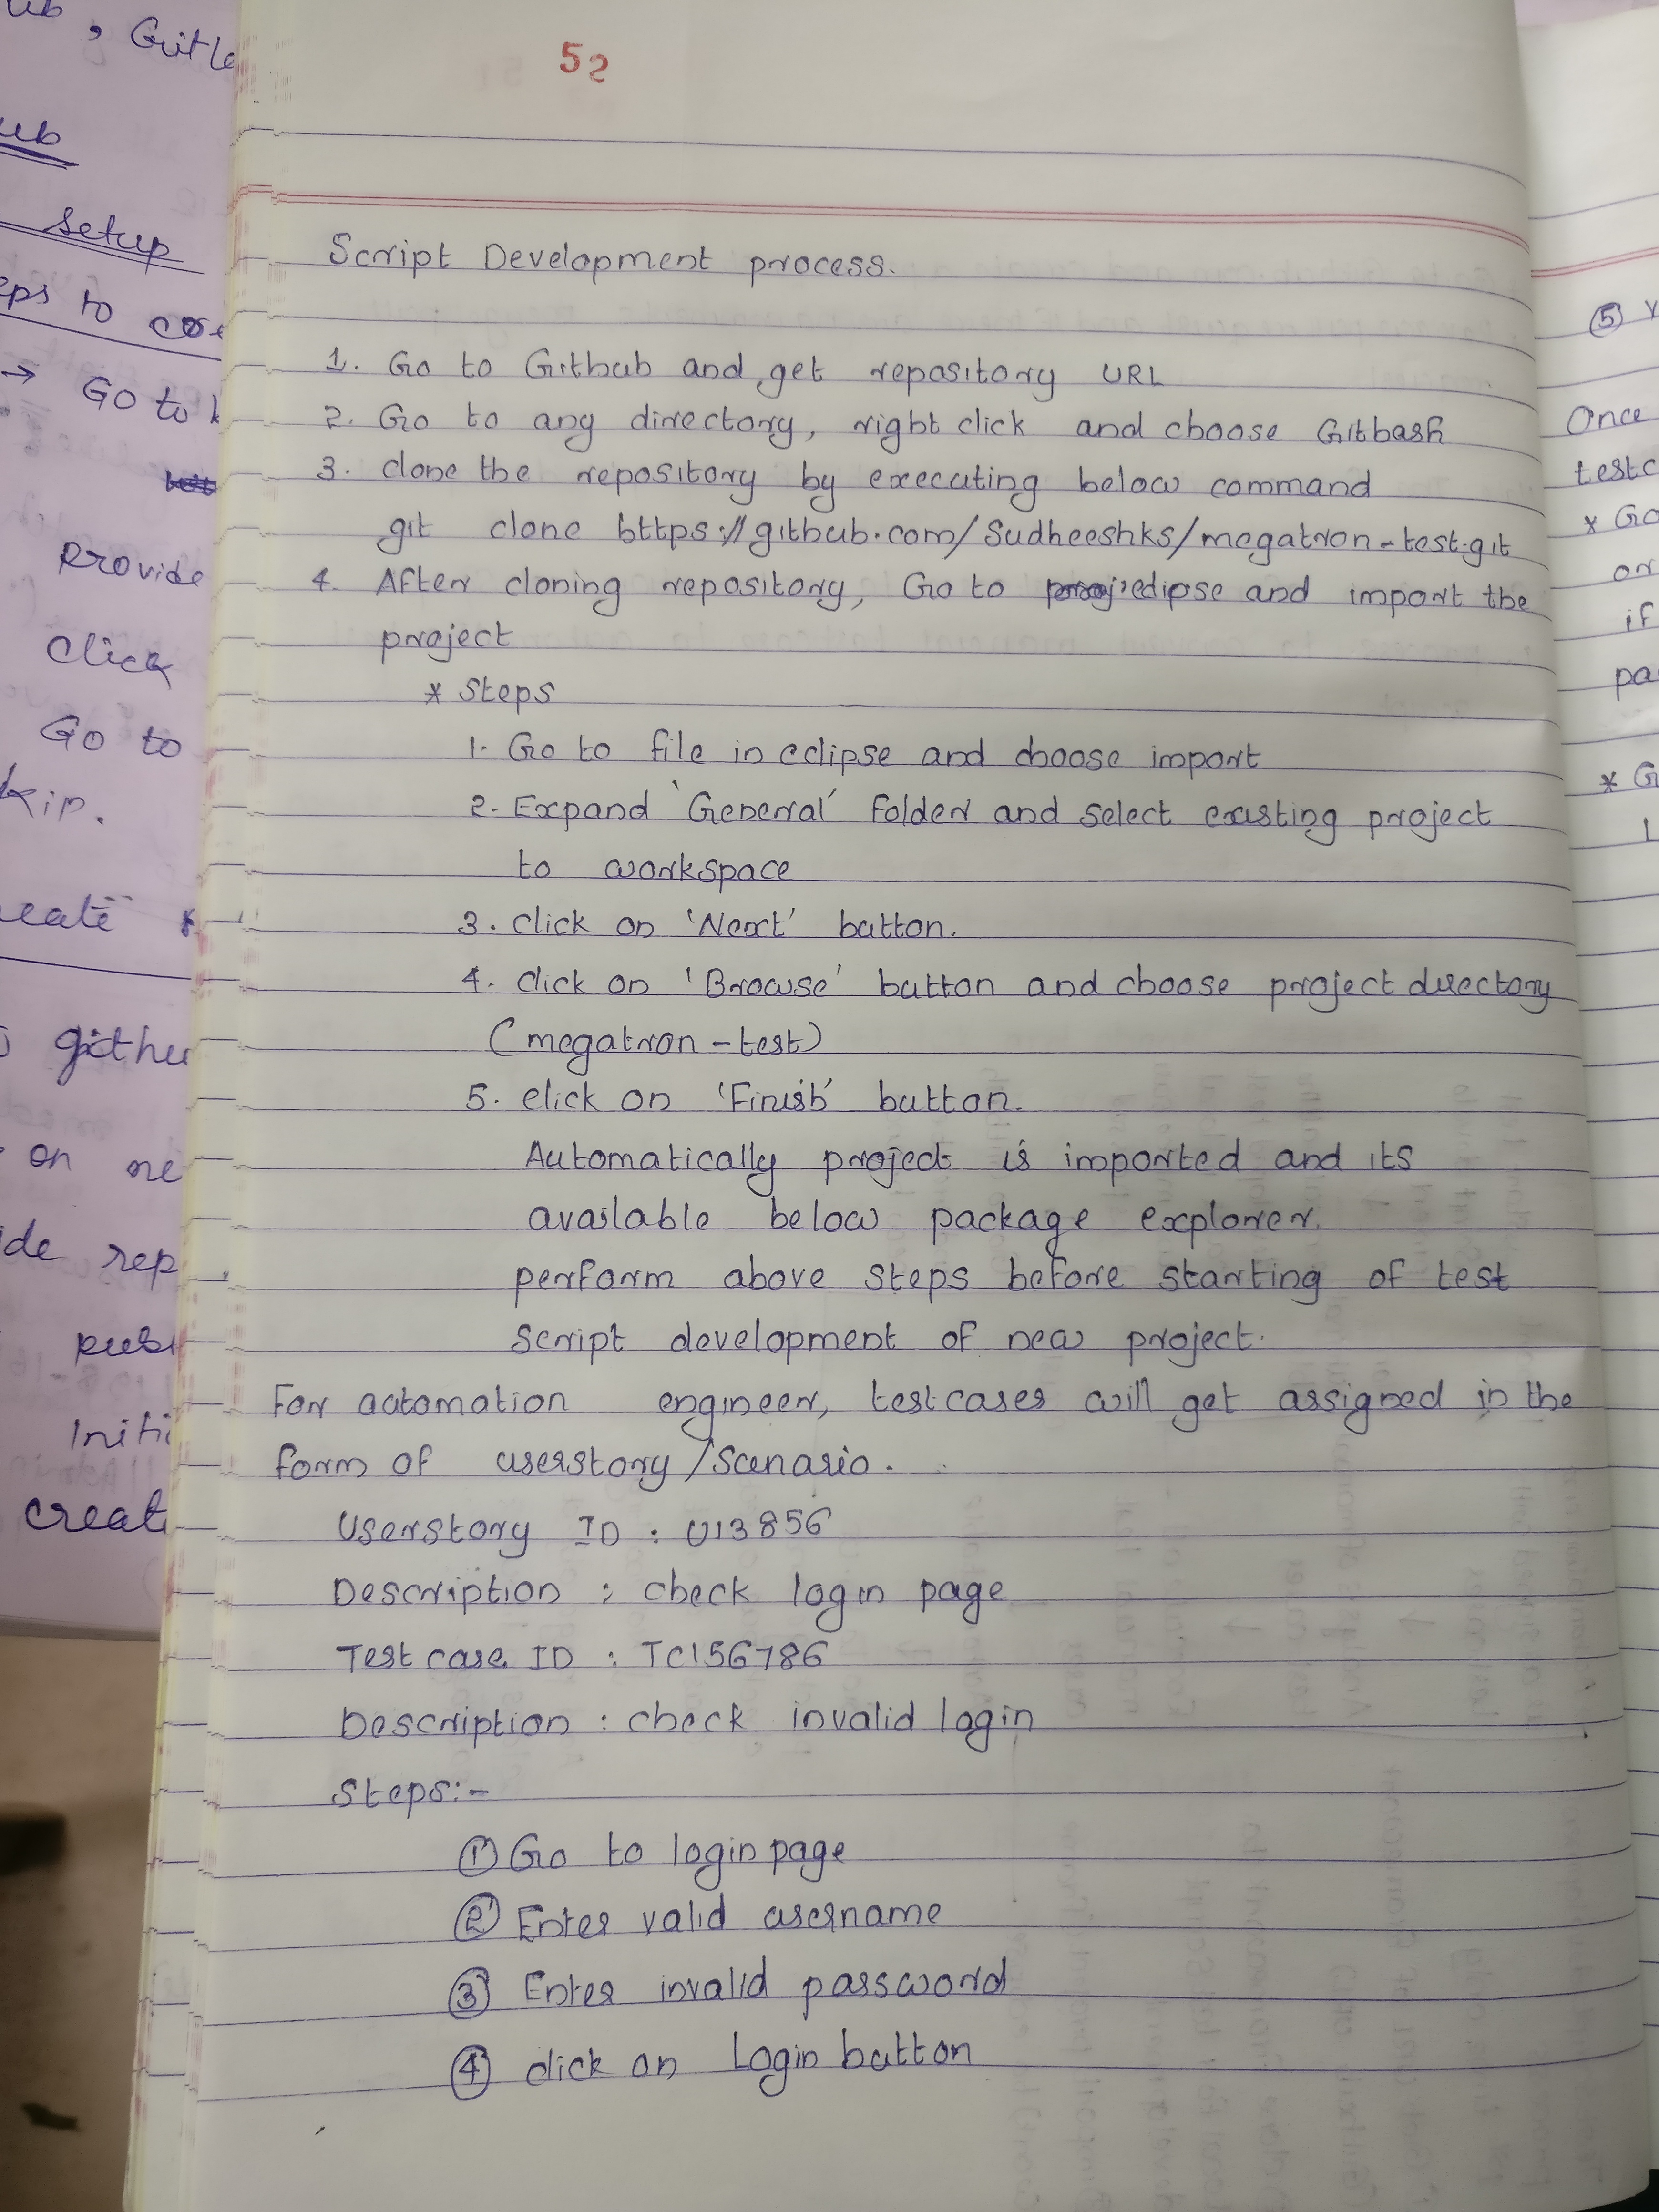 52
Script Development process.
1. Go to Github and get repository URL
2. Go to any directory, right click and choose Gitbash
3. clone the repository by executing below command
git clone https://github.com/Sudheeshks/megatron-test.git
4. After cloning repository, Go to eclipse and import the
project
* Steps
1. Go to file in eclipse and choose import
2. Expand 'General' Folder and select existing project
to workspace
3. click on 'Next' button.
4. click on 'Browse' button and choose project directory
(megatron-test)
5. click on 'Finish' button.
Automatically project is imported and its
available below package explorer.
perform above steps before starting of test
script development of new project.
For automation engineer, testcases will get assigned in the
form of userstory/Scenario.
Userstory ID : U13856
Description : check login page
Test case ID : TC156786
Description : check invalid login
Steps:-
① Go to login page
② Enter valid username
③ Enter invalid password
④ click on Login button
Setup
Go to
Provide
Click
Go to
on
⑤
Once
* Go
or
if